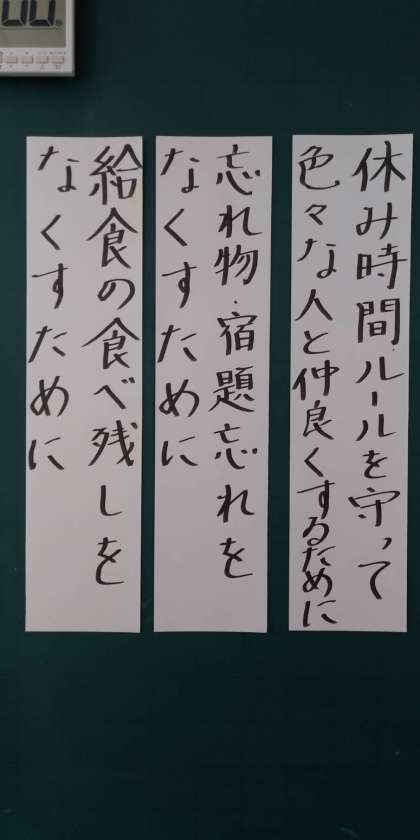 休み時間ルールを守って
色々な人と仲良くするために
忘れ物・宿題忘れを
なくすために
給食の食べ残しを
なくすために
00